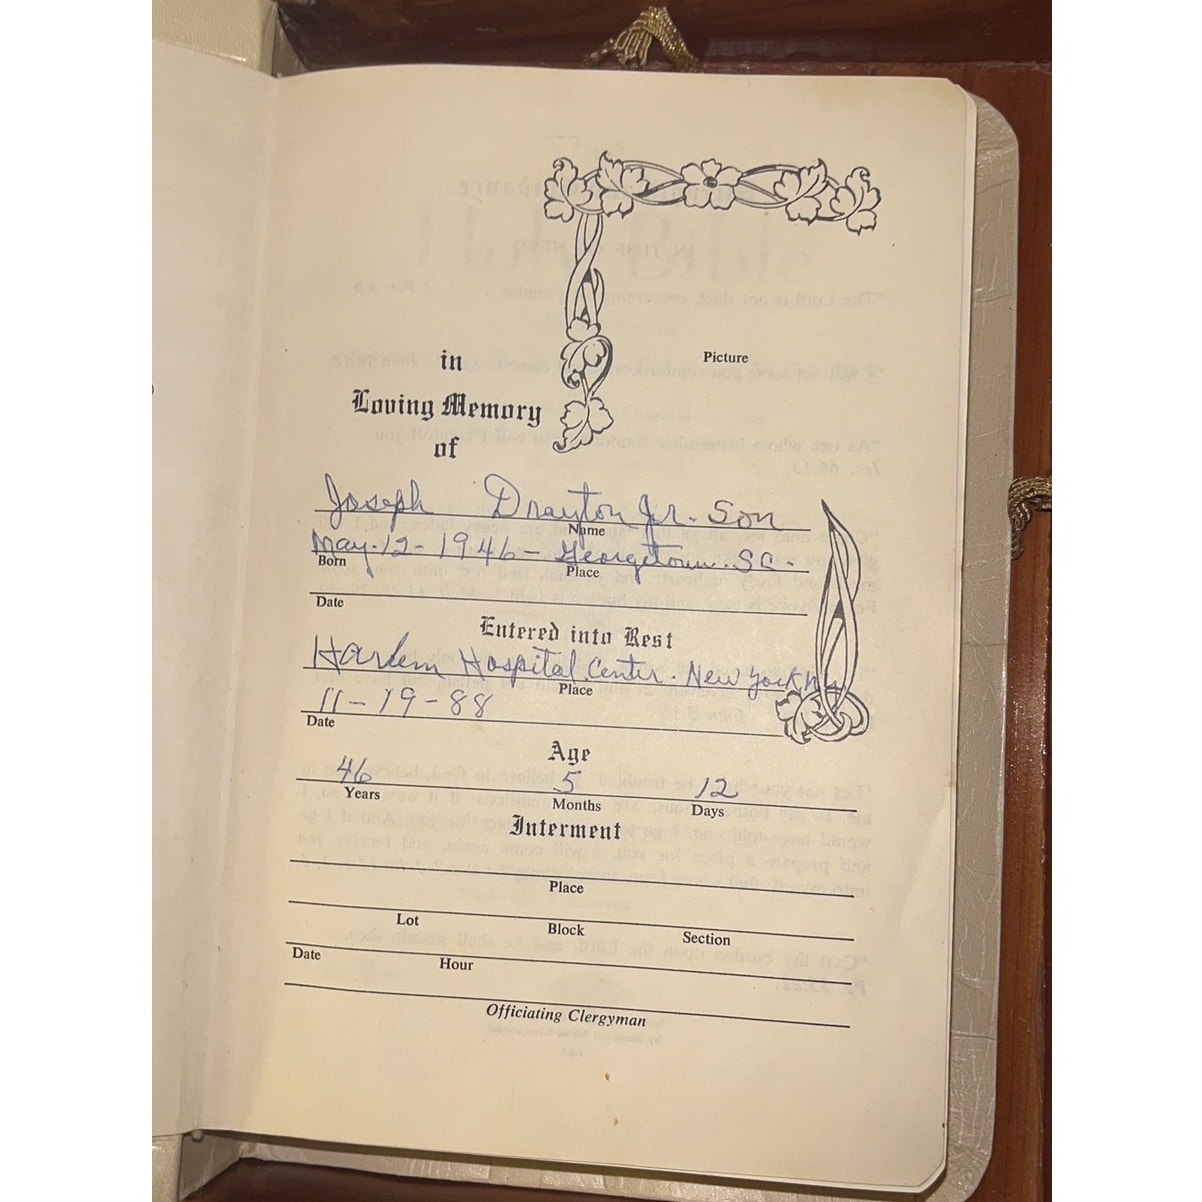 Picture
in
Loving Memory
of
Joseph Drayton Jr. Son
Name
May-12-1946- Georgetown. SC.
Born Place
Date
Entered into Rest
Harlem Hospital Center. New York
Place
11-19-88
Date
Age
46 5 12
Years Months Days
Interment
Place
Lot Block Section
Date Hour
Officiating Clergyman